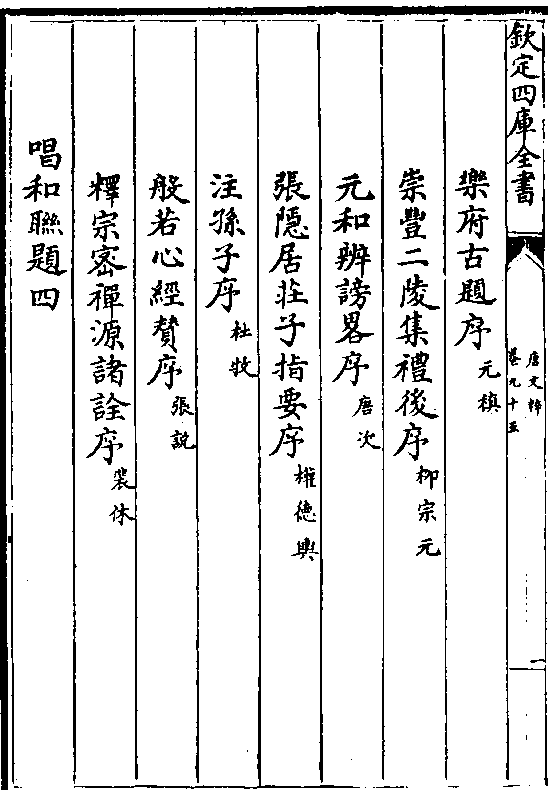 欽定四庫全書
唐文粹
卷九十五
一
樂府古題序 元稹
崇豐二陵集禮後序 柳宗元
元和辨謗畧序 唐次
張隠居莊子指要序 權徳輿
注孫子序 杜牧
般若心經賛序 張説
釋宗密禪源諸詮序 裴休
唱和聯題四